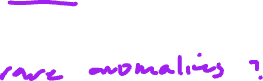 rare anomalies ?